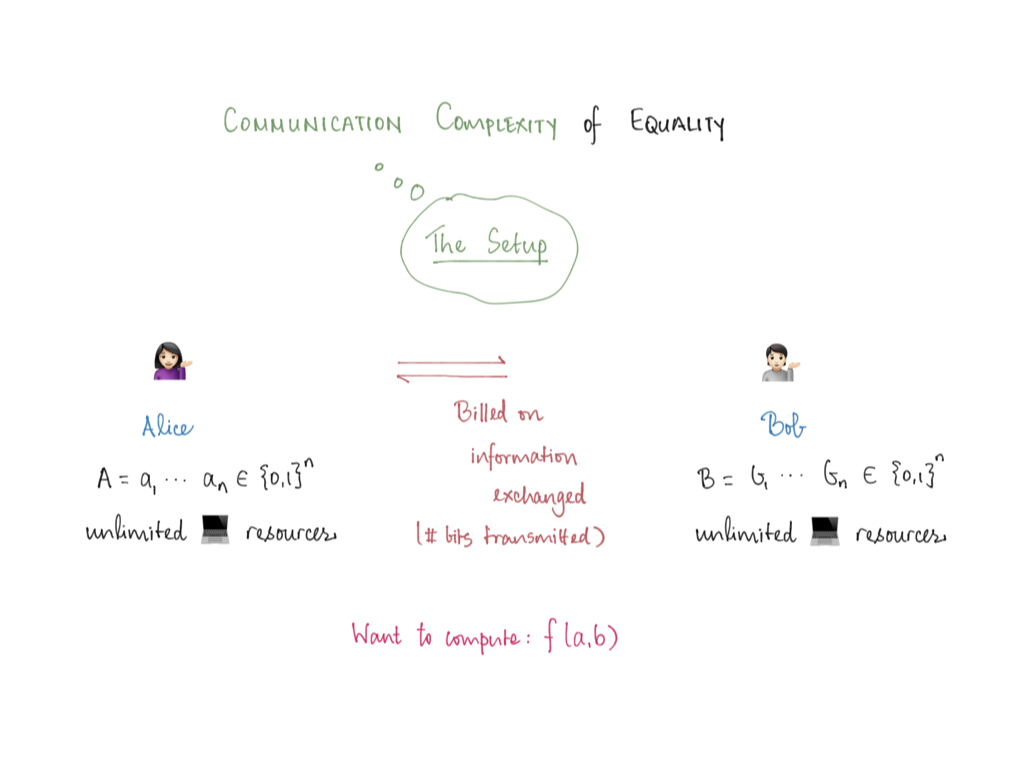 COMMUNICATION COMPLEXITY of EQUALITY
The Setup
Alice
A = a₁ ... aₙ ∈ {0,1}ⁿ
unlimited 💻 resources
Billed on
information
exchanged
(# bits transmitted)
Bob
B = b₁ ... bₙ ∈ {0,1}ⁿ
unlimited 💻 resources
Want to compute: f(a,b)